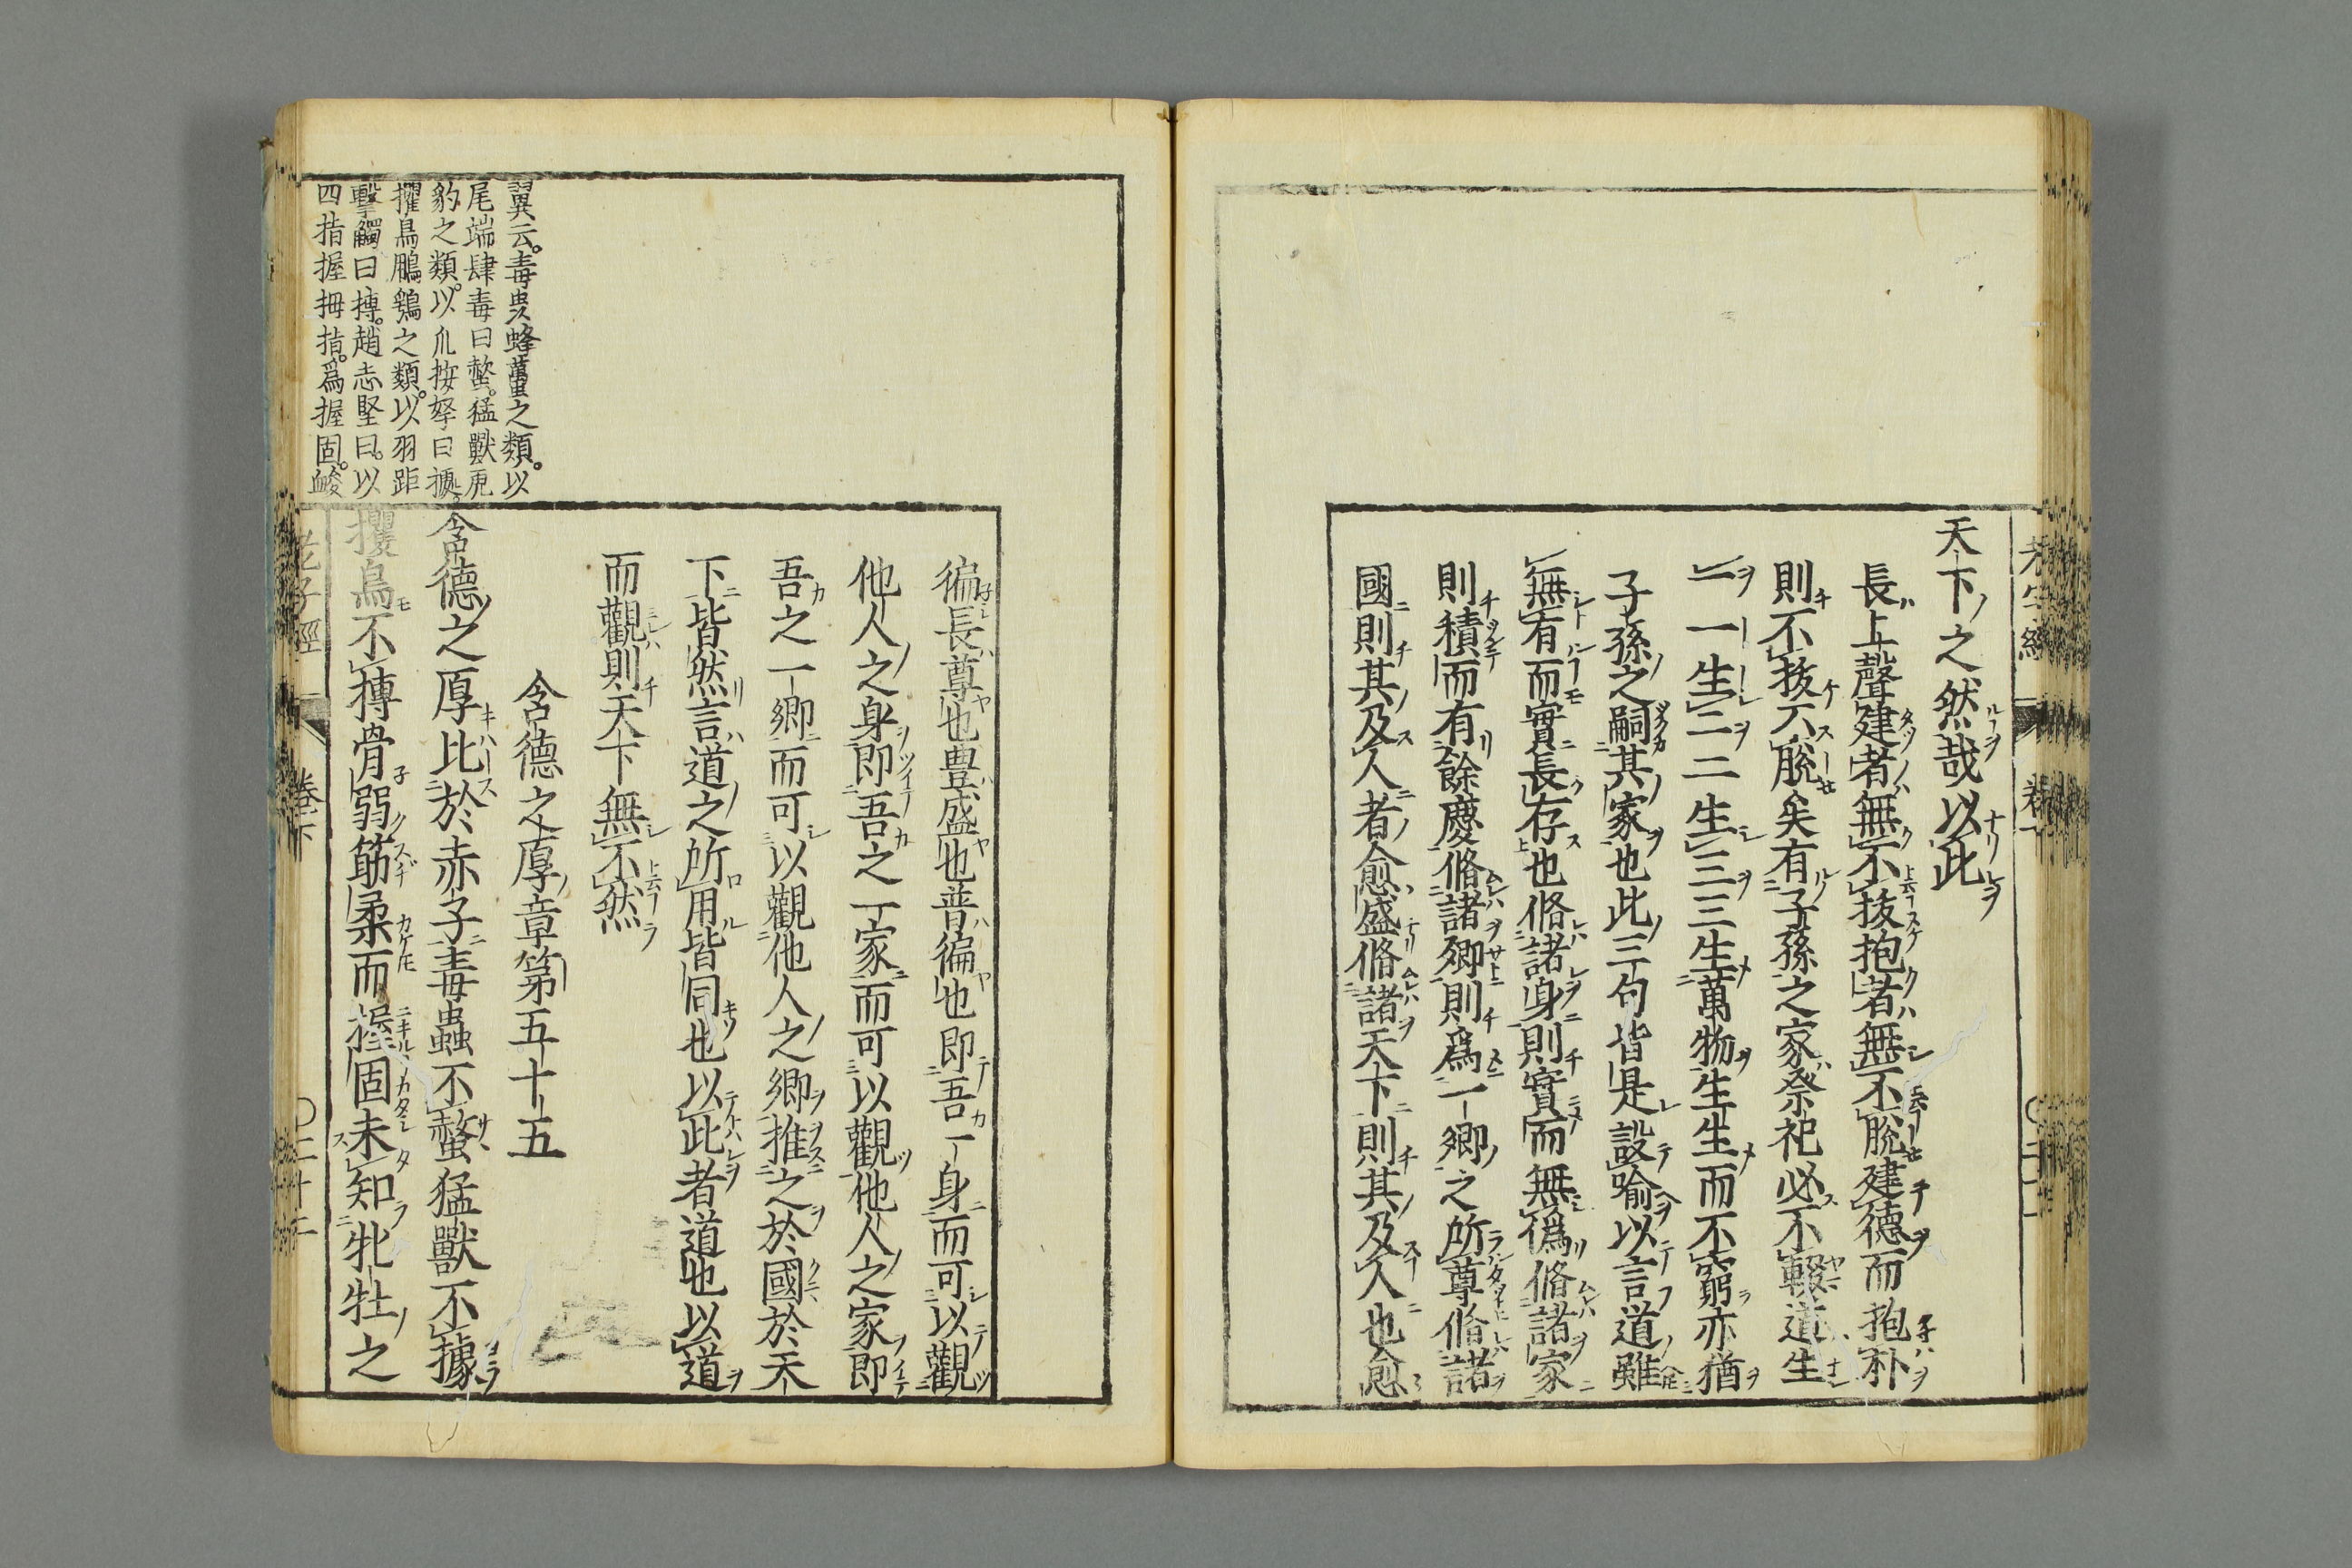 天下之然哉以此
長上聲建者無不拔抱者無不脫建德而抱朴
則不拔不脫矣有子孫之家祭祀必不輟道生
一一生二二生三三生萬物生生而不窮亦猶
子孫之嗣其家也此三句皆是設喻以言道雖
無有而實長存也脩諸身則實而無僞脩諸家
則積而有餘慶脩諸鄉則爲一鄉之所尊脩諸
國則其及人者愈盛脩諸天下則其及人也愈
徧長尊也豊盛也普徧也即吾一身而可以觀
他人之身即吾之一家而可以觀他人之家即
吾之一鄉而可以觀他人之鄉推之於國於天
下皆然言道之所用皆同也以此者道也以道
而觀則天下無不然
含德之厚章第五十五
翼云。毒䖝蜂蠆之類。以
尾端肆毒曰螫。猛獸虎
豹之類。以爪按拏曰據。
攫鳥鵰鷂之類。以羽距
擊觸曰搏。趙志堅曰。以
四指握拇指。爲握固。䘒
含德之厚比於赤子毒蟲不螫猛獸不據
攫鳥不搏骨弱筋柔而握固未知牝牡之
老子經 卷下 〇二十二